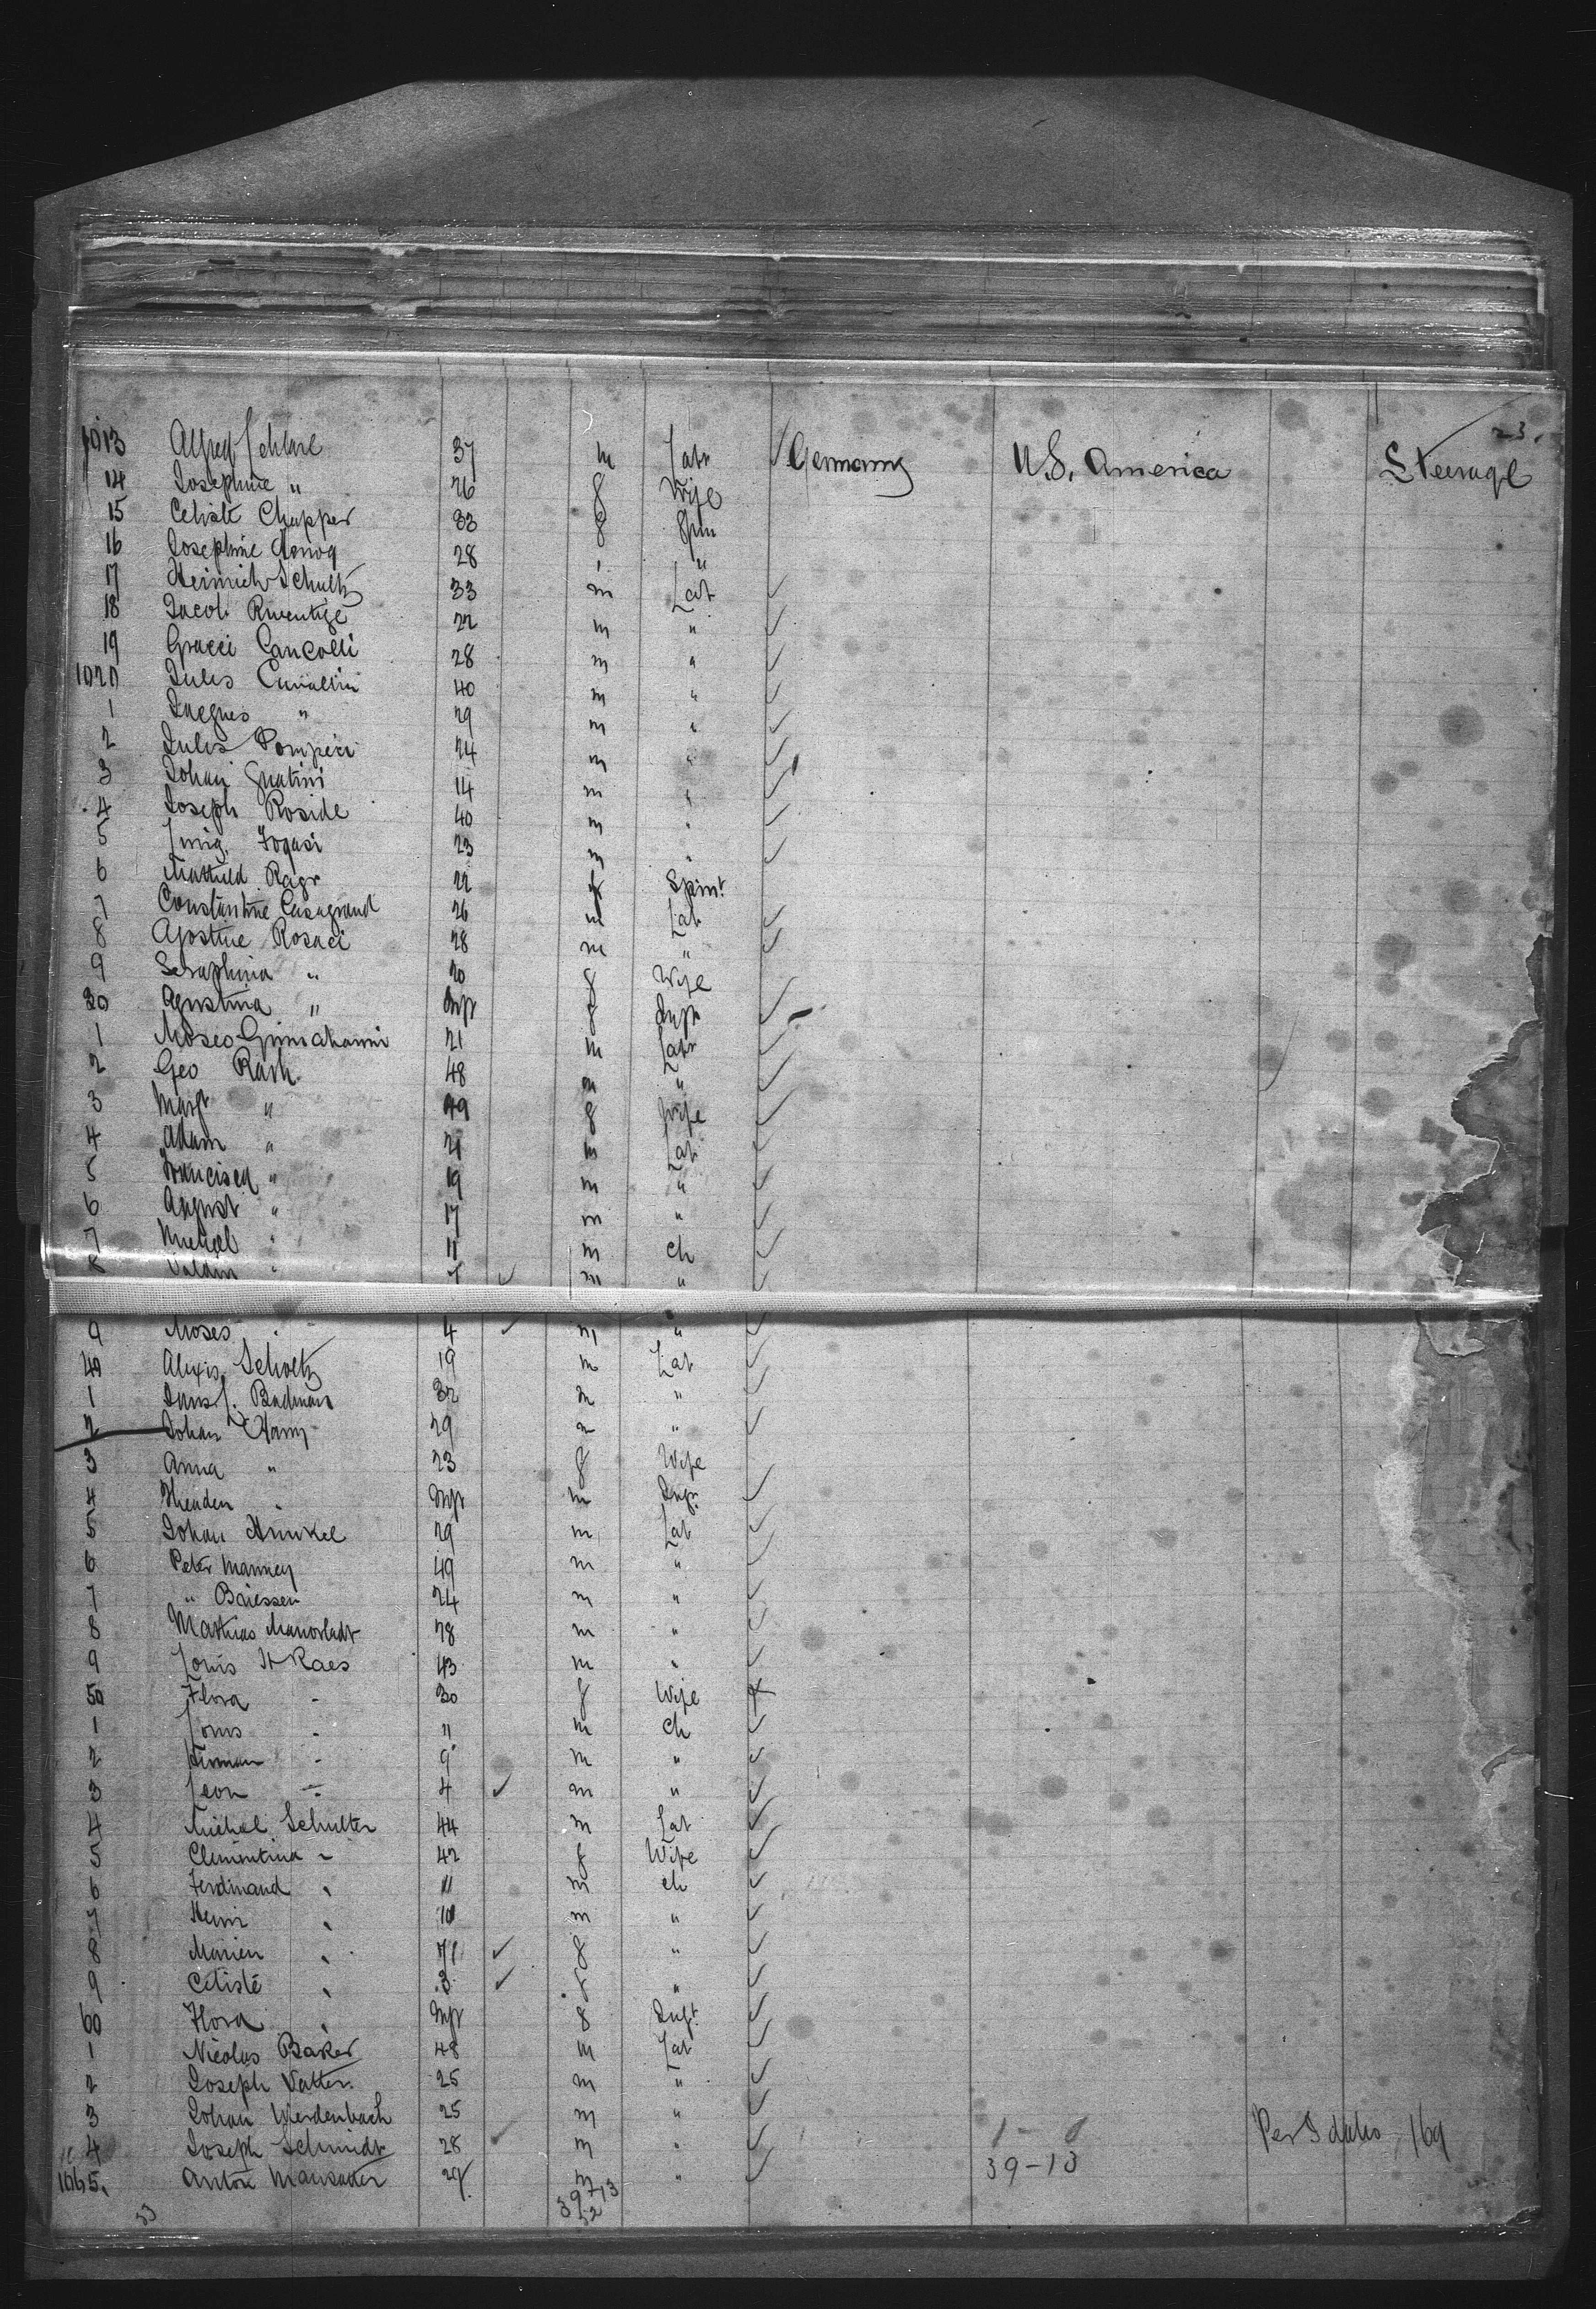 23.
1013 Alfred Schlare 37 m Labr Germany U.S. America Steerage
14 Josephine " 26 f Wife
15 Celiste Chapper 33 f Spin
16 Josephine 28 " "
17 Heinrich Schultz 33 m Lab
18 Jacob 22 m "
19 Gracci Cancolli 28 m "
1020 Jules 40 m "
1 Jacques " 29 m "
2 Jules Pompeii 24 m "
3 Johan Guatini 14 m "
4 Joseph Roside 40 m "
5 Luig. Fogasi 23 m "
6 Mathild Ragr 22 f Spinr
7 Constantine Casagrand 26 m Lab
8 Agostine Rosaci 28 m "
9 Seraphina " 20 f Wife
30 Agustina " Inft f Inft
1 Moses 21 m Labr
2 Geo Rash 48 m "
3 Margt " 49 f Wife
4 Adam " 21 m Lab
5 Francisca " 19 m "
6 August " 17 m "
7 Michael " 11 m Ch
8 Valdin " 7 m "
9 Moses " 4 m "
40 Alexis Scholtz 19 m Lab
1 Badman 32 m "
2 Johan Hamy 29 m "
3 Anna " 23 f Wife
4 " Inft m Inft
5 Johan Hunkel 29 m Lab
6 Peter Manney 49 m "
7 " Baiessen 24 m "
8 Mathias 28 m "
9 Louis St Raes 43 m "
50 Flora " 30 f Wife
1 Louis " 11 m Ch
2 Herman " 9 m "
3 Leon " 4 m "
4 Michel Schulter 44 m Lab
5 Clementina " 42 f Wife
6 Ferdinand " 11 m ch
7 Henri " 10 m "
8 Marien " 7 f "
9 Celisté " 3 f "
60 Flora " Inft f Inft
1 Nicolas Baker 48 m Lab
2 Joseph Vatter 25 m "
3 Johan Werdenbach 25 m "
4 Joseph Schmidt 28 m "
1065. Anton Mansader 29 m "
39-13
39 13
52
53